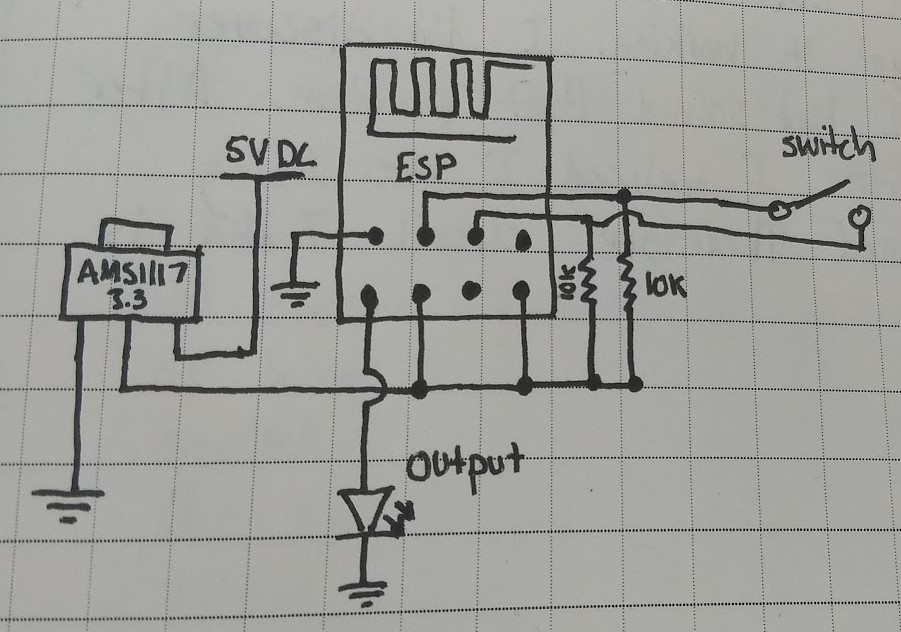 5V DC
ESP
switch
AMS1117
3.3
10K
10K
Output